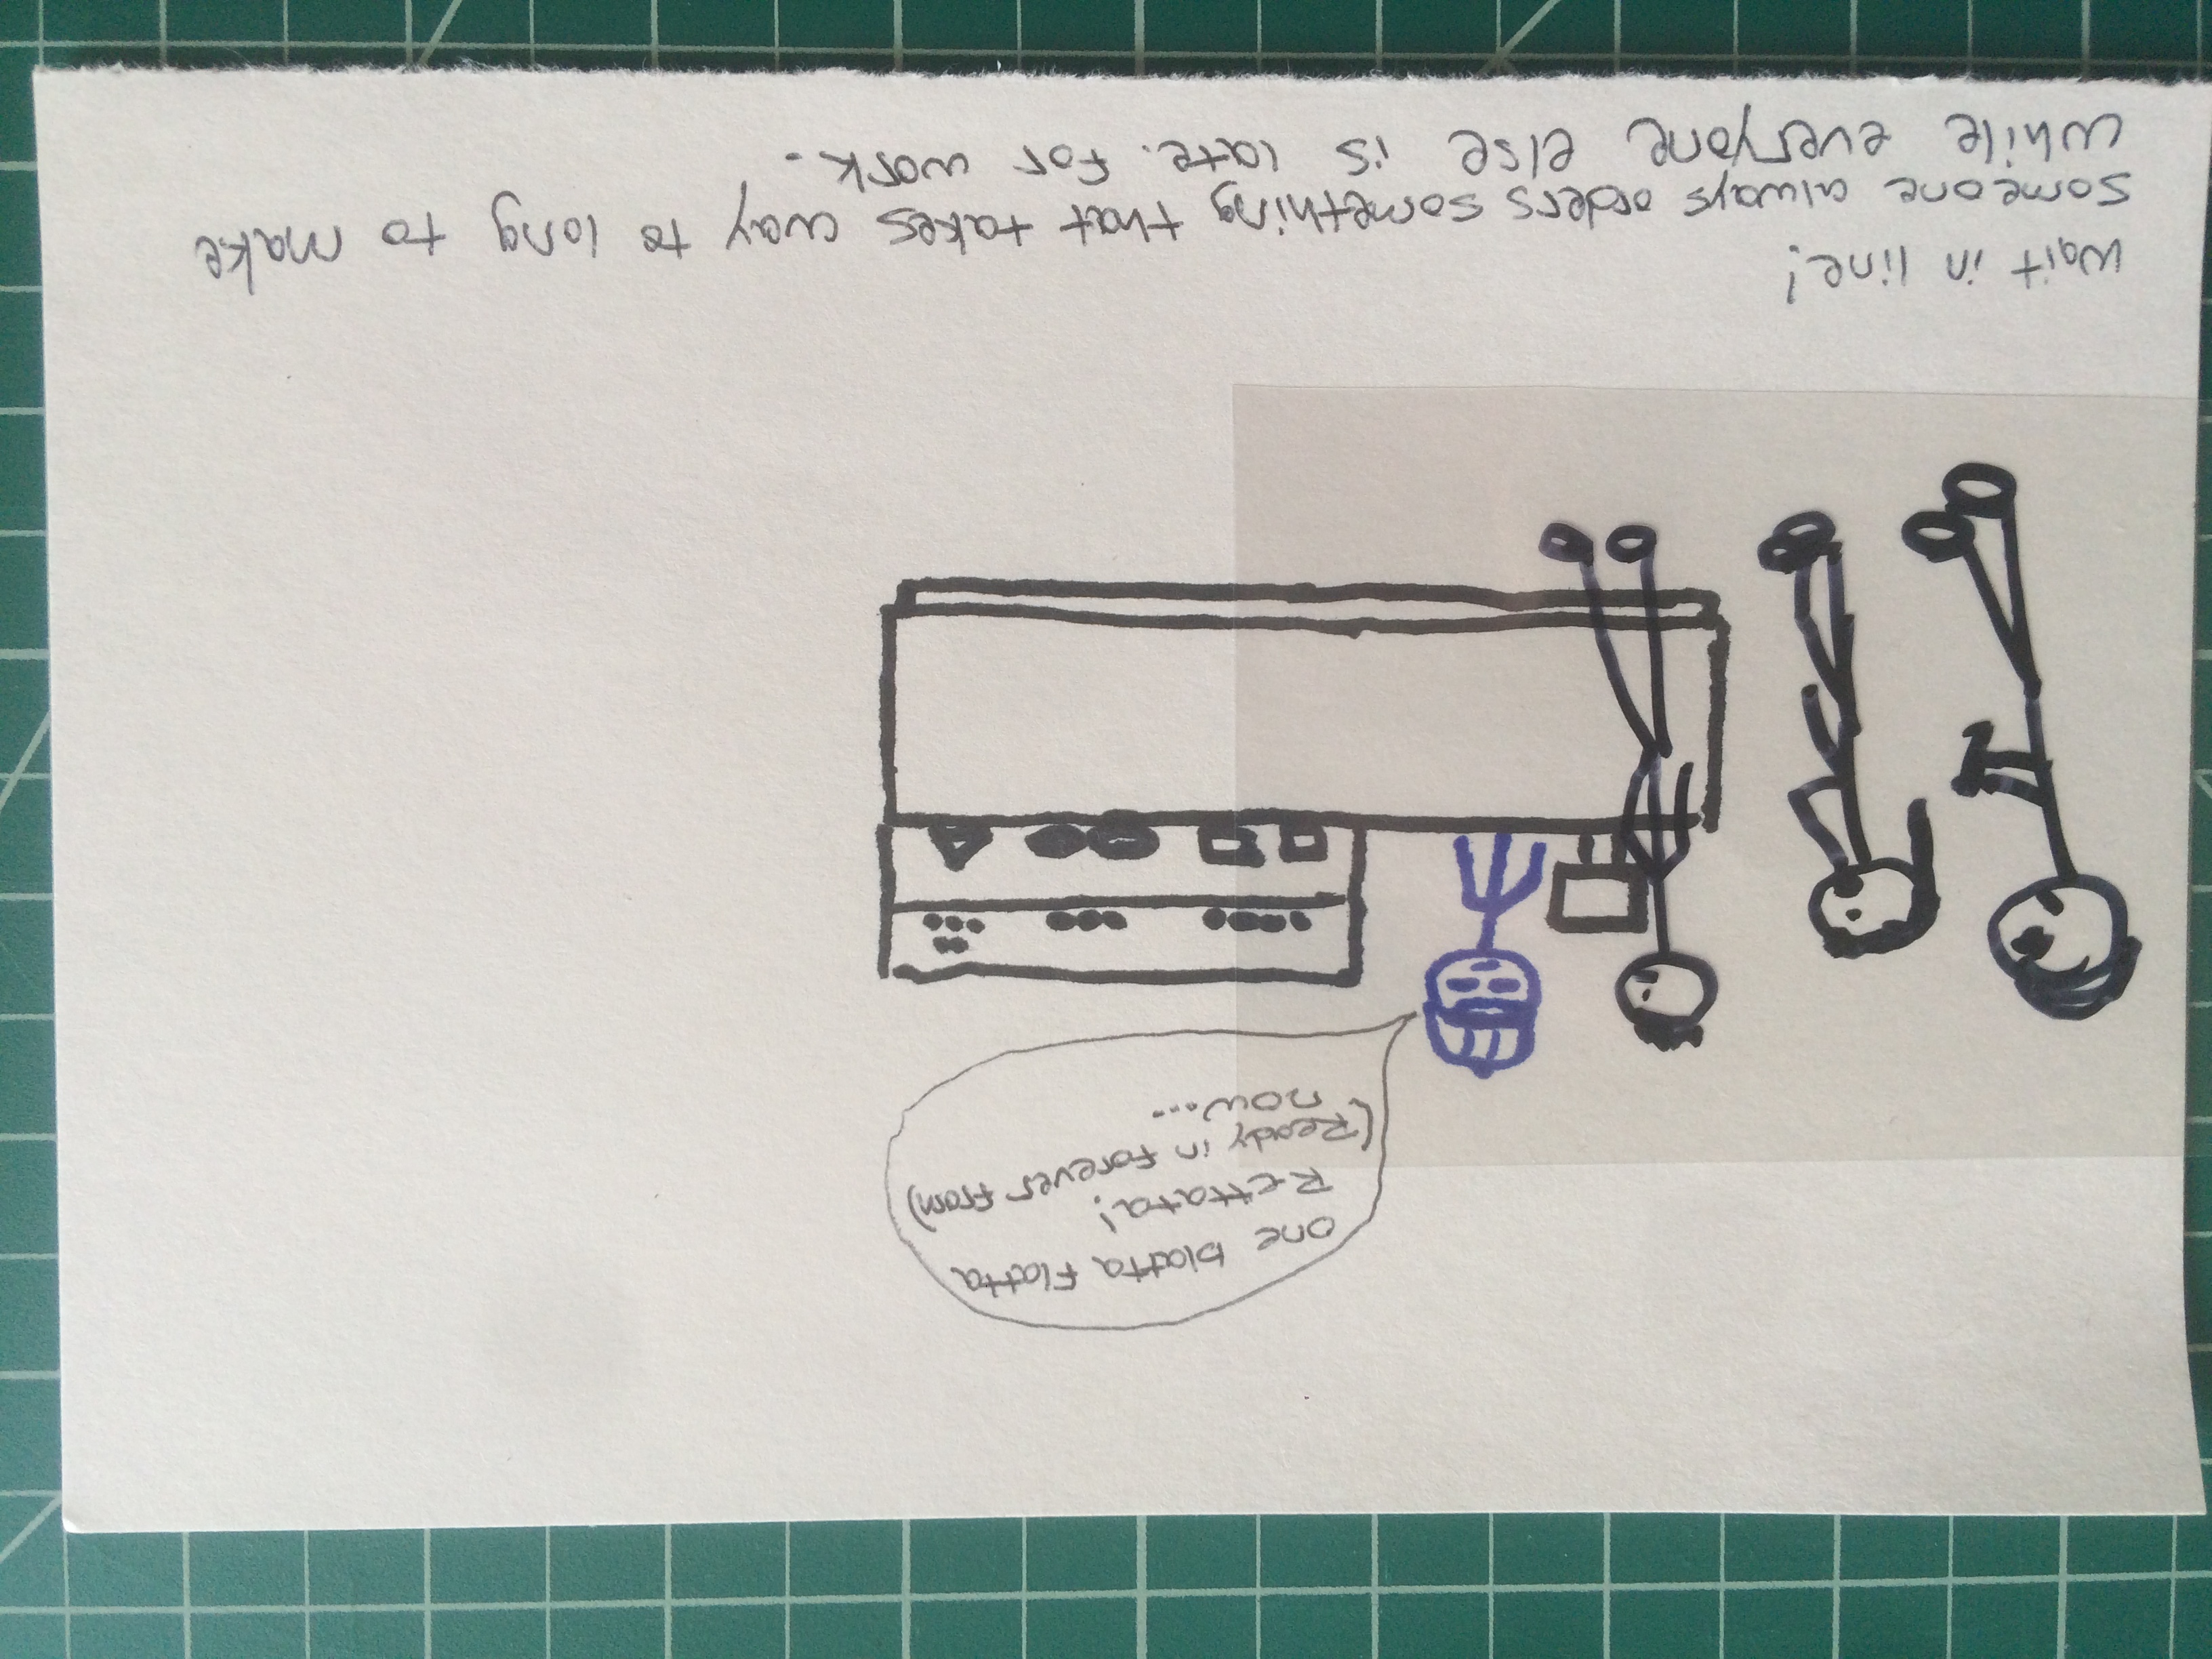 one blatta Flatta
Rettata!
(Ready in forever from)
now...
Wait in line!
someone always orders something that takes way to long to make
while everyone else is late. for work.